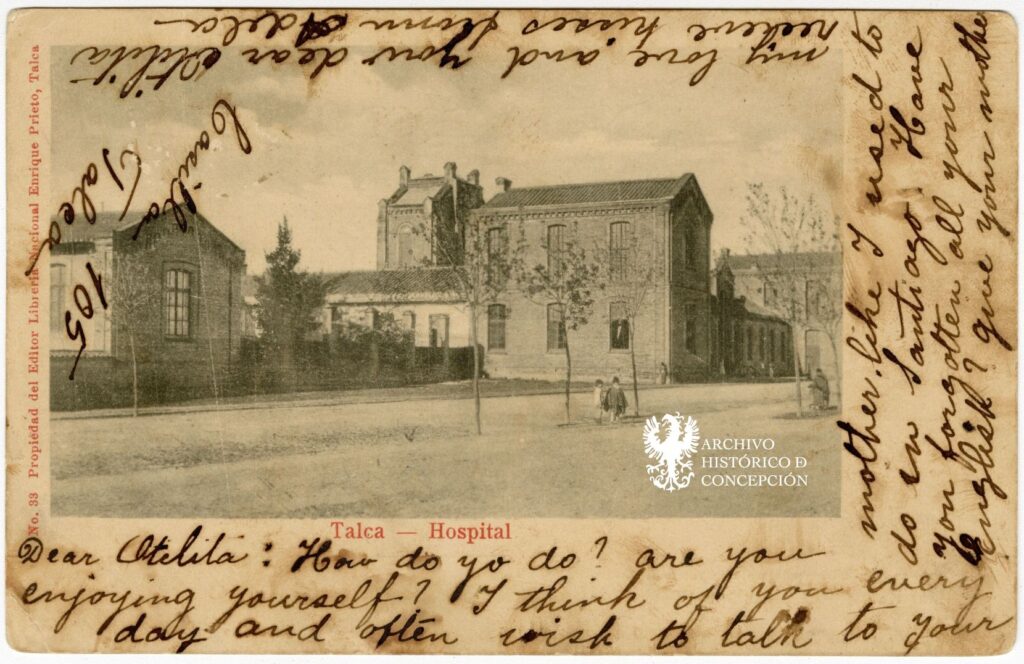 No. 33 Propiedad del Editor Librería Nacional Enrique Prieto, Talca
Talca — Hospital
Dear Otelita: How do yo do? are you
enjoying yourself? I think of you every
day and often wish to talk to your
mother like I used to
do in Santiago. Have
you forgotten all your
English? give your mother
my love and you dear Otilita
receive kisses from Adela
Casilla 105
Talca
ARCHIVO
HISTÓRICO Đ
CONCEPCIÓN